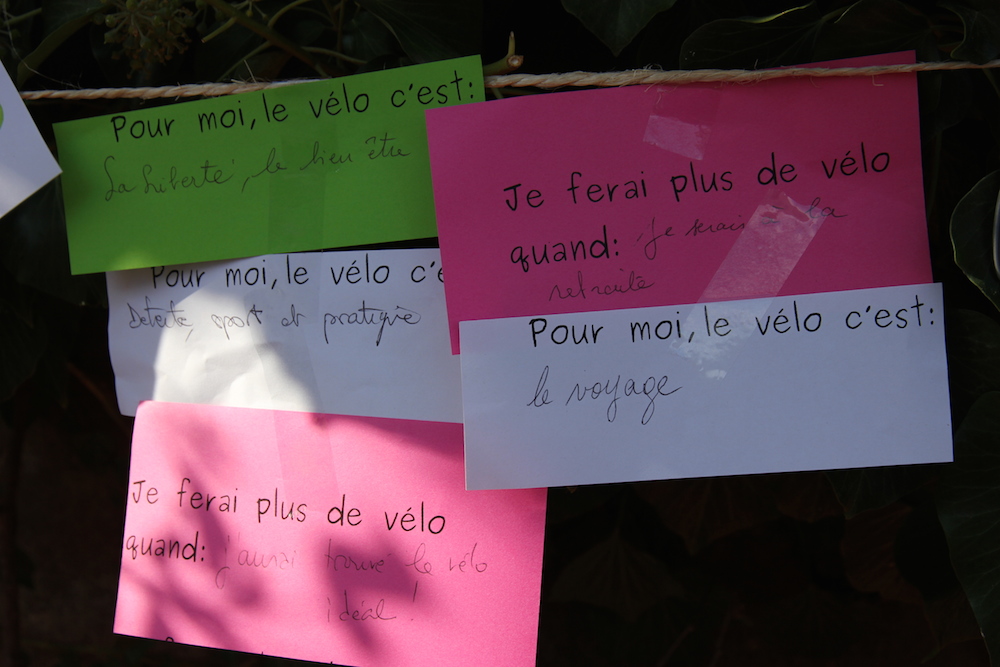 Pour moi, le vélo c'est:
La liberté, le bien être
Pour moi, le vélo c'e
Detente, sport et pratique
Je ferai plus de vélo
quand: j'aurai trouvé le vélo
idéal !
Je ferai plus de vélo
quand: je serai à la
retraite
Pour moi, le vélo c'est:
le voyage